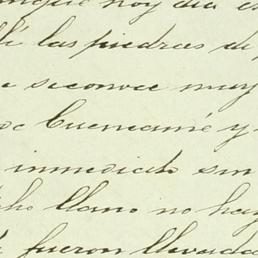 nque hoy dia es
lé las piedras de p
se conoce muy
de Cuencamé y
inmediato sin
cho llano no hay
fueron llevada